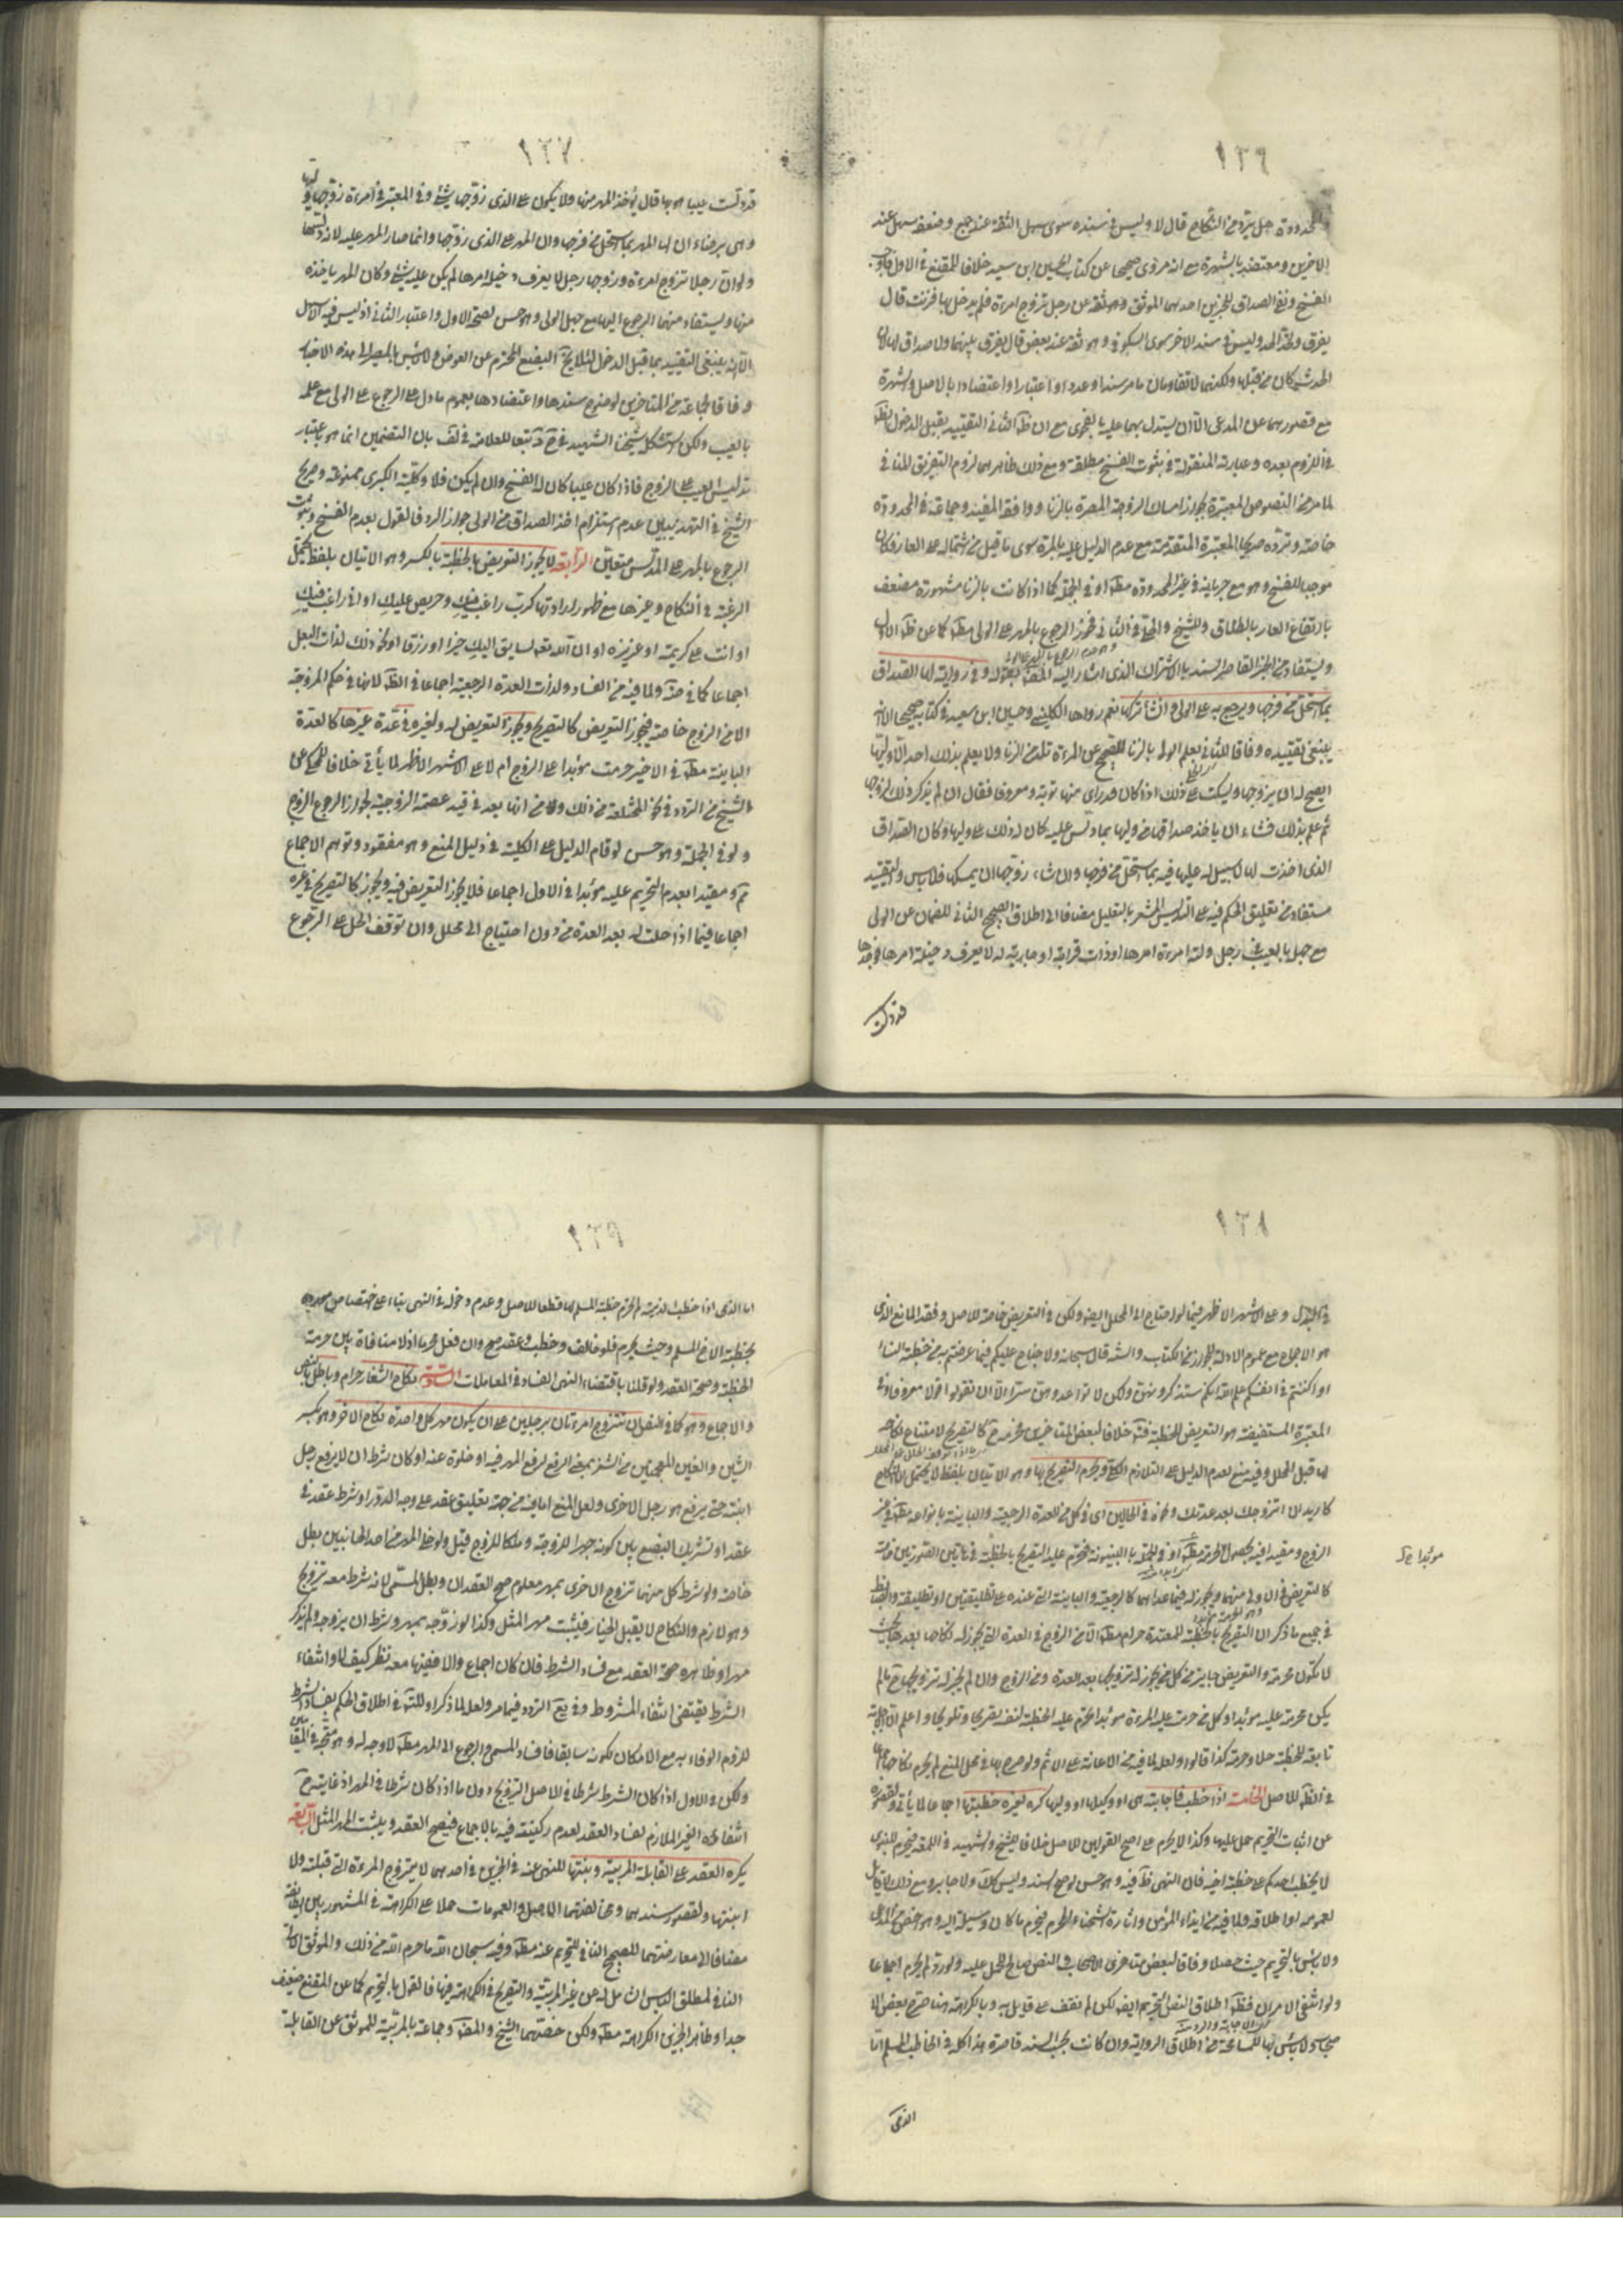 ١٣٦
والمحدودة هل ترد من النكاح قال لا وليس في سنده سوى سهل الثقة عند جمع وضعفه سهل عند
الاخرين ومعتضد بالشهرة مع انه مروى صحيحا عن كتاب الحسين ابن سعيد خلافا للمقنع في الاول
الفسخ ونفى الصداق للخبرين احدهما الموثق عن رجل تزوج امرءة فلم يدخل بها فزنت قال
يفرق وتحد الحد وليس في سند الاخر سوى السكونى وهو ثقة عند بعض قال يفرق بينهما ولا صداق لها لان
الحدث كان من قبلها ولكنهما لا تقاومان ما مر سندا وعددا واعتبارا واعتضادا بالاصل والشهرة
مع قصورهما عن المدعى الا ان يستدل بهما عليه بالفحوى مع ان ظ الثانى التقييد بقبل الدخول
في اللزوم بعده وعبارته المنقولة في ثبوت الفسخ مطلقة ومع ذلك ظاهرهما لزوم التفريق المنافى
لما مر من النصوص المعتبرة بجواز امساك الزوجة المصرة بالزنا ووافقه المفيد وجماعة في المحدودة
خاصة وترده صريحا المعتبرة المتقدمة مع عدم الدليل عليه بالمرة سوى ما قيل من اشتماله على العار فكان
موجبا للفسخ وهو مع جريانه في غير المحدودة مط او في الجملة كما اذا كانت بالزنا مشهورة مضعف
بارتفاع العار بالطلاق وللشيخ والحلى في الثانى فجوز الرجوع بالمهر على الولى مط كما عن ظ الاول
ويستفاد من الخبر القاصر السند بالاشتراك الذى اشار اليه المص بقوله وفي رواية لها الصداق
بما استحل من فرجها ويرجع به على الولى نعم رواها الكلينى وحسين ابن سعيد في كتابه صحيحا الا انه
ينبغى تقييده وفاقا للثانى بعلم الولى بالزنا للصحيح عن المرءة تلد من الزنا ولا يعلم بذلك احد الا وليها
ايصح له ان يزوجها ويسكت على ذلك اذا كان قد راى منها توبة ومعروفا فقال ان لم يذكر ذلك لزوجها
ثم علم بذلك فشاء ان ياخذ صداقها من وليها بما دلس عليه كان له ذلك على وليها وكان الصداق
الذى اخذت لها لا سبيل له عليها فيه بما استحل من فرجها وان شاء زوجها ان يمسكها فلا باس والتقييد
مستفاد من تعليق الحكم فيه على التدليس المشعر بالتعليل مضافا الى اطلاق الصحيح الثانى للضمان عن الولى
مع جهله بالعيب في رجل ولته امرءة امرها او ذات قرابة او جارية له لا يعرف دخيلة امرها فوجدها
قد دلست
١٣٧
قد دلست عيبا هو بها قال يؤخذ المهر منها ولا يكون على الذى زوجها شئ وفي المعتبر في امرءة زوجها وليها
وهى برصاء ان لها المهر بما استحل من فرجها وان المهر على الذى زوجها وانما صار المهر عليه لانه دلسها
ولو ان رجلا تزوج امرءة وزوجها رجل لا يعرف دخيلة امرها لم يكن عليه شئ وكان المهر ياخذه
منها ويستفاد منهما الرجوع اليها مع جهل الولى وهو حسن لصحة الاول واعتبار الثانى اذ ليس فيه الا سهل
الا انه ينبغى التقييد بما قبل الدخول لئلا يخ البضع المحترم عن العوض ولا باس بالمصير الى هذه الاخبار
وفاقا لجماعة من المتاخرين لوضوح سندها واعتضادها بعموم ما دل على الرجوع على الولى مع علمه
بالعيب ولكن استشكله شيخنا الشهيد تبعا للعلامة في لف بان التضمين انما هو باعتبار
تدليس العيب على الزوج فاذا كان عيبا كان له الفسخ وان لم يكن فلا وكلية الكبرى ممنوعة وصريح
الشيخ في التهذيبين عدم استلزام اخذ الصداق من الولى جواز الرد فالقول بعدم الفسخ وثبوت
الرجوع بالمهر على المدلس متعين الرابعة لا يجوز التعريض بالخطبة بالكسر وهو الاتيان بلفظ يحتمل
الرغبة في النكاح وغيرها مع ظهور ارادتها كرب راغب فيك وحريص عليك او انى راغب فيك
او انت على كريمة او عزيزة او ان الله تعه لسايق اليك خيرا او رزقا او نحو ذلك لذات البعل
اجماعا كما في ولما فيه من الفساد ولذات العدة الرجعية اجماعا في الظ لانها في حكم المزوجة
الا من الزوج خاصة فيجوز التعريض كالتصريح ويجوز التعريض له ولغيره في عدة غيرها كالعدة
الباينة مط في الاخير حرمت مؤبدا على الزوج ام لا على الاشهر الاظهر لما يأتى خلافا للمحكى عن
الشيخ من التردد في نحو المختلعة من ذلك ومن انها بعد في قيد عصمة الزوجية لجواز الرجوع الزوج
ولو في الجملة وهو حسن لو قام الدليل على الكلية في ذيل المنع وهو مفقود وتوهم الاجماع
ومقيدا بعدم التحريم عليه مؤبدا في الاول اجماعا فلا يجوز التعريض فيه ويجوز كالتصريح في غيره
اجماعا فيما اذا حلت له بعد العدة من دون احتياج الى محلل وان توقف الحل على الرجوع
١٣٨
في البذل وعلى الاشهر الاظهر فيما لو احتاج الى المحلل ايضا ولكن في التعريض خاصة للاصل وفقد المانع الذى
هو الاجماع مع عموم الادلة للجواز من الكتاب والسنة قال سبحانه ولا جناح عليكم فيما عرضتم به من خطبة النساء
او اكننتم في انفسكم علم الله انكم ستذكرونهن ولكن لا تواعدوهن سرا الا ان تقولوا قولا معروفا وفى
المعتبرة المستفيضة هو التعريض للخطبة خلافا لبعض المتاخرين فحرمه ح كالتصريح لامتناع نكاحه
لها قبل المحلل وفيه منع لعدم الدليل على التلازم الكلى ويحرم التصريح بها وهو الاتيان بلفظ لا يحتمل الا النكاح
كاريد ان اتزوجك بعد عدتك ونحوه في الحالين اى في كل من العدة الرجعية والباينة بانواعه مط من غير
الزوج ومقيدا فيه بحصول الحرمة مط او في الجملة بالبينونة فتحرم عليه التصريح بالخطبة في هاتين الصورتين خاصة
مؤبدا صح
كالتعريض في الاولى منهما ويجوز له فيما عداهما كالرجعية والباينة التى عنده على تطليقتين او تطليقة والضابط
في جميع ما ذكر ان التصريح بالخطبة للمعتدة حرام مط الا من الزوج في العدة التى يجوز له نكاحها بعدها بحيث
لا تكون محرمة والتعريض جايز من كل من يجوز له تزويجها بعد العدة ومن الزوج وان لم يجز له تزويجها ح ما لم
يكن محرمة عليه مؤبدا وكل من حرمت عليه المرءة مؤبدا تحرم عليه الخطبة لنفسه تصريحا وتلويحا واعلم ان الاجابة
تابعة للخطبة حلا وحرمة كذا قالوا ولعل لما فيه من الاعانة على الاثم ولو صرح بها في محل المنع لم يحرم نكاحها
في الظ للاصل الخامسة اذا خطب فاجابته هى او وكيلها او وليها كره لغيره خطبتها اجماعا لما يأتى ولقصوره
عن اثبات التحريم حمل عليها وكذا لا يحرم على اصح القولين للاصل خلافا للشيخ والشهيد في اللمعة فتحرم للنبوى
لا يخطب احدكم على خطبة اخيه فان النهى ظ فيه وهو حسن لو صح السند وليس كك ولا جابر ومع ذلك لا قايل
لعمومه او اطلاقه ولما فيه من ايذاء المؤمن واثارة الشحناء المحرم فيحرم ما كان وسيلة اليه وهو اخص من المدعى
ولا باس بالتحريم حيث حصلا وفاقا لبعض متاخرى الاصحاب والنص صالح للحمل عليه ولو رد لم يحرم اجماعا
ولو انتفى الامران فظ اطلاق النص التحريم ايضا لكن لم نقف على قايل به وبالكراهة هنا صرح بعض الا
صحاب ولا باس بها للمسامحة من اطلاق الرواية وان كانت بحسب السند قاصرة هذا كله في الخاطب المسلم اما
الذى
١٣٩
اما الذى اذا خطب الذمية لم تحرم خطبة المسلم لها قطعا للاصل وعدم دخوله في النهى بناء على اختصاص
بخطبة الاخ المسلم وحيث يحرم فلو خالف وخطب وعقد صح وان فعل محرما اذ لا منافاة بين حرمة
الخطبة وصحة العقد ولو قلنا باقتضاء النهى الفساد في المعاملات السادسة نكاح الشغار حرام وباطل بالنص
والاجماع وهو كما في النص ان تتزوج امرءتان برجلين على ان يكون مهر كل واحدة نكاح الاخرى وهو بكسر
الشين والغين المعجمتين من الشغر بمعنى الرفع لرفع المهر فيه او خلوه عنه او كان شرط ان لا يرفع رجل
ابنته حتى يرفع هو رجل الاخرى ولعل المنع اما فيه من جهة تعليق عقد على وجه الدور او شرط عقد في
عقد او تشريك البضع بين كونه مهرا للزوجة وملكا للزوج قيل ولو خلا المهر من احد الجانبين بطل
خاصة ولو شرط كل منهما تزوج الاخرى بمهر معلوم صح العقدان وبطل المسمى لانه شرط معه تزويج
وهو لازم والنكاح لا يقبل الخيار فيثبت مهر المثل وكذا لو زوجه بمهر وشرط ان يزوجه ولم يذكر
مهرا وظاهره صحة العقد مع فساد الشرط فان كان اجماع والا ففيها معه نظر كيف لا وانتفاء
الشرط يقتضى انتفاء المشروط وفي يع التردد فيما مر ولعل لما ذكر او للتردد في اطلاق الحكم بفساد الشرط
للزوم الوفاء به مع الامكان لكونه سايقا ففساد المسمى والرجوع الى المهر مط لا وجه له وهو متجه في المقامين
ولكن في الاول اذا كان الشرط شرطا في الاصل التزويج دون ما اذا كان شرطا في المهر اذ غايته ح
انتفائه الغير الملازم لفساد العقد لعدم ركنيته فيه بالاجماع فيصح العقد ويثبت المهر المثل السابعة
يكره العقد على القابلة المربية وبنتها للنهى عنه في الخبرين في احدهما لا يتزوج المرءة التى قبلته ولا
ابنتها ولقصور سندهما ومخالفتهما الاصل والعمومات حملا على الكراهة في المشهور بين الطائفة
مضافا الى معارضتهما للصحيح النافى للتحريم عنه مط وفيه سبحان الله ما حرم الله من ذلك والموثق
النافى لمطلق الباس الشامل له عن غير المربية والتصريح في الكراهة فيها فالقول بالتحريم كما عن المقنع ضعيف
جدا وظاهر الخبرين الكراهة مط ولكن خصتهما الشيخ والمص وجماعة بالمربية للموثق عن القابلة